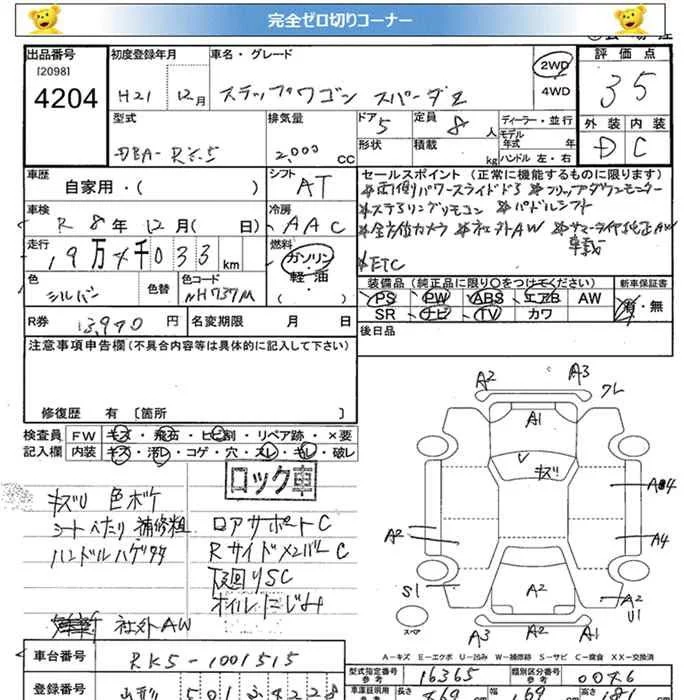 完全ゼロ切りコーナー
出品番号 初度登録年月 車名・グレード 2WD 評価点
[2098] 4WD
4204 H21 12月 ステップワゴン スパーダZ 35
型式 排気量 ドア 定員 ディーラー・並行 外装 内装
DBA-RK5 2,000 CC 5 8人 モデル年式 年 D C
形状 積載 kg ハンドル 左・右
車歴 シフト セールスポイント (正常に機能するものに限ります)
自家用・( ) AT *両側パワースライドドア *フリップダウンモニター
車検 冷房 *ステアリングリモコン *パドルシフト
R8年 12月( 日) AAC *全方位カメラ *社外AW *サマータイヤ純正AW
車載
走行 燃料 *ETC
19万 千033 km ガソリン
軽・油
色 色替 色コード 装備品 (純正品に限り○をつけてください) 新車保証書
シルバー NH737M PS PW ABS エアB AW 有・無
SR ナビ TV カワ
R券 13,940円 名変期限 月 日 後日品
注意事項申告欄 (不具合内容等は具体的に記入して下さい)
修復歴 有 〔箇所 〕
検査員 FW キズ・飛石・ヒビ割・リペア跡・×要
記入欄 内装 キズ・汚レ・コゲ・穴・スレ・キレ・破レ
ロック車
キズU 色ボケ
シートヘタリ 補修粗
ハンドルハゲ
ロアサポートC
RサイドメンバーC
下廻りSC
オイルにじみ
社外AW
A2 A3 クレ
A1
V キズ
A4
A2 A4
S1 A2 A2
U1
スペア A3 A2 A1
A-キズ E-エクボ U-凹み W-補修跡 S-サビ C-腐食 XX-交換済
車台番号 RK5-1001515
型式指定番号 参考 16365 類別区分番号 参考 0076
登録番号 501
車庫証明用 参考 長さ 469 cm 幅 169 cm 高さ 181